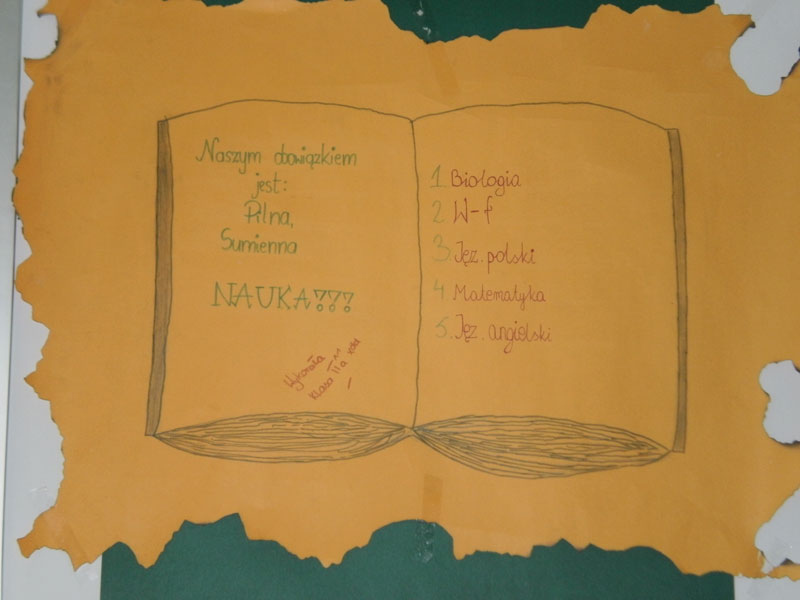 Naszym obowiązkiem
jest:
Pilna,
Sumienna
NAUKA???
Wykonała
klasa IIa
1. Biologia
2. W-f
3. Jęz. polski
4. Matematyka
5. Jęz. angielski